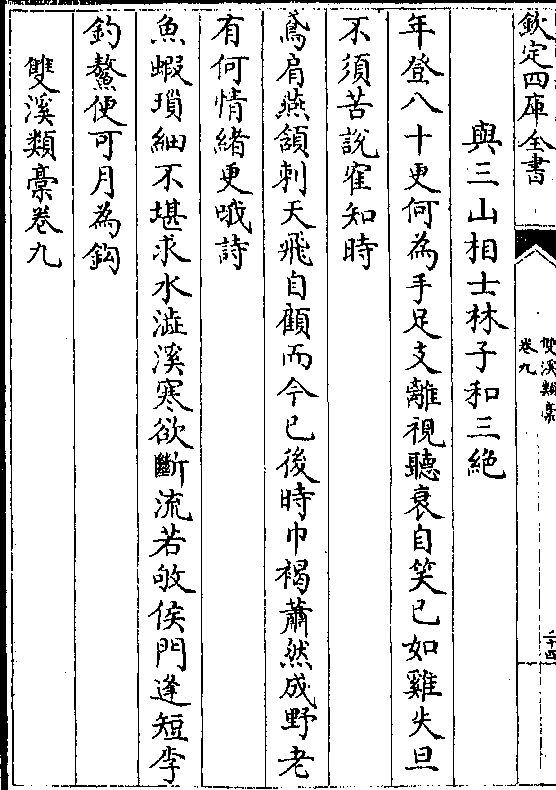 欽定四庫全書
雙溪類藁
卷九
二十四
與三山相士林子和三絶
年登八十更何為手足支離視聽衰自笑已如雞失旦
不須苦說寉知時
鳶肩燕頷刺天飛自顧而今已後時巾褐蕭然成野老
有何情緒更哦詩
魚蝦瑣細不堪求水澁溪寒欲斷流若敂侯門逢短李
釣鰲便可月為鈎
雙溪類藁卷九